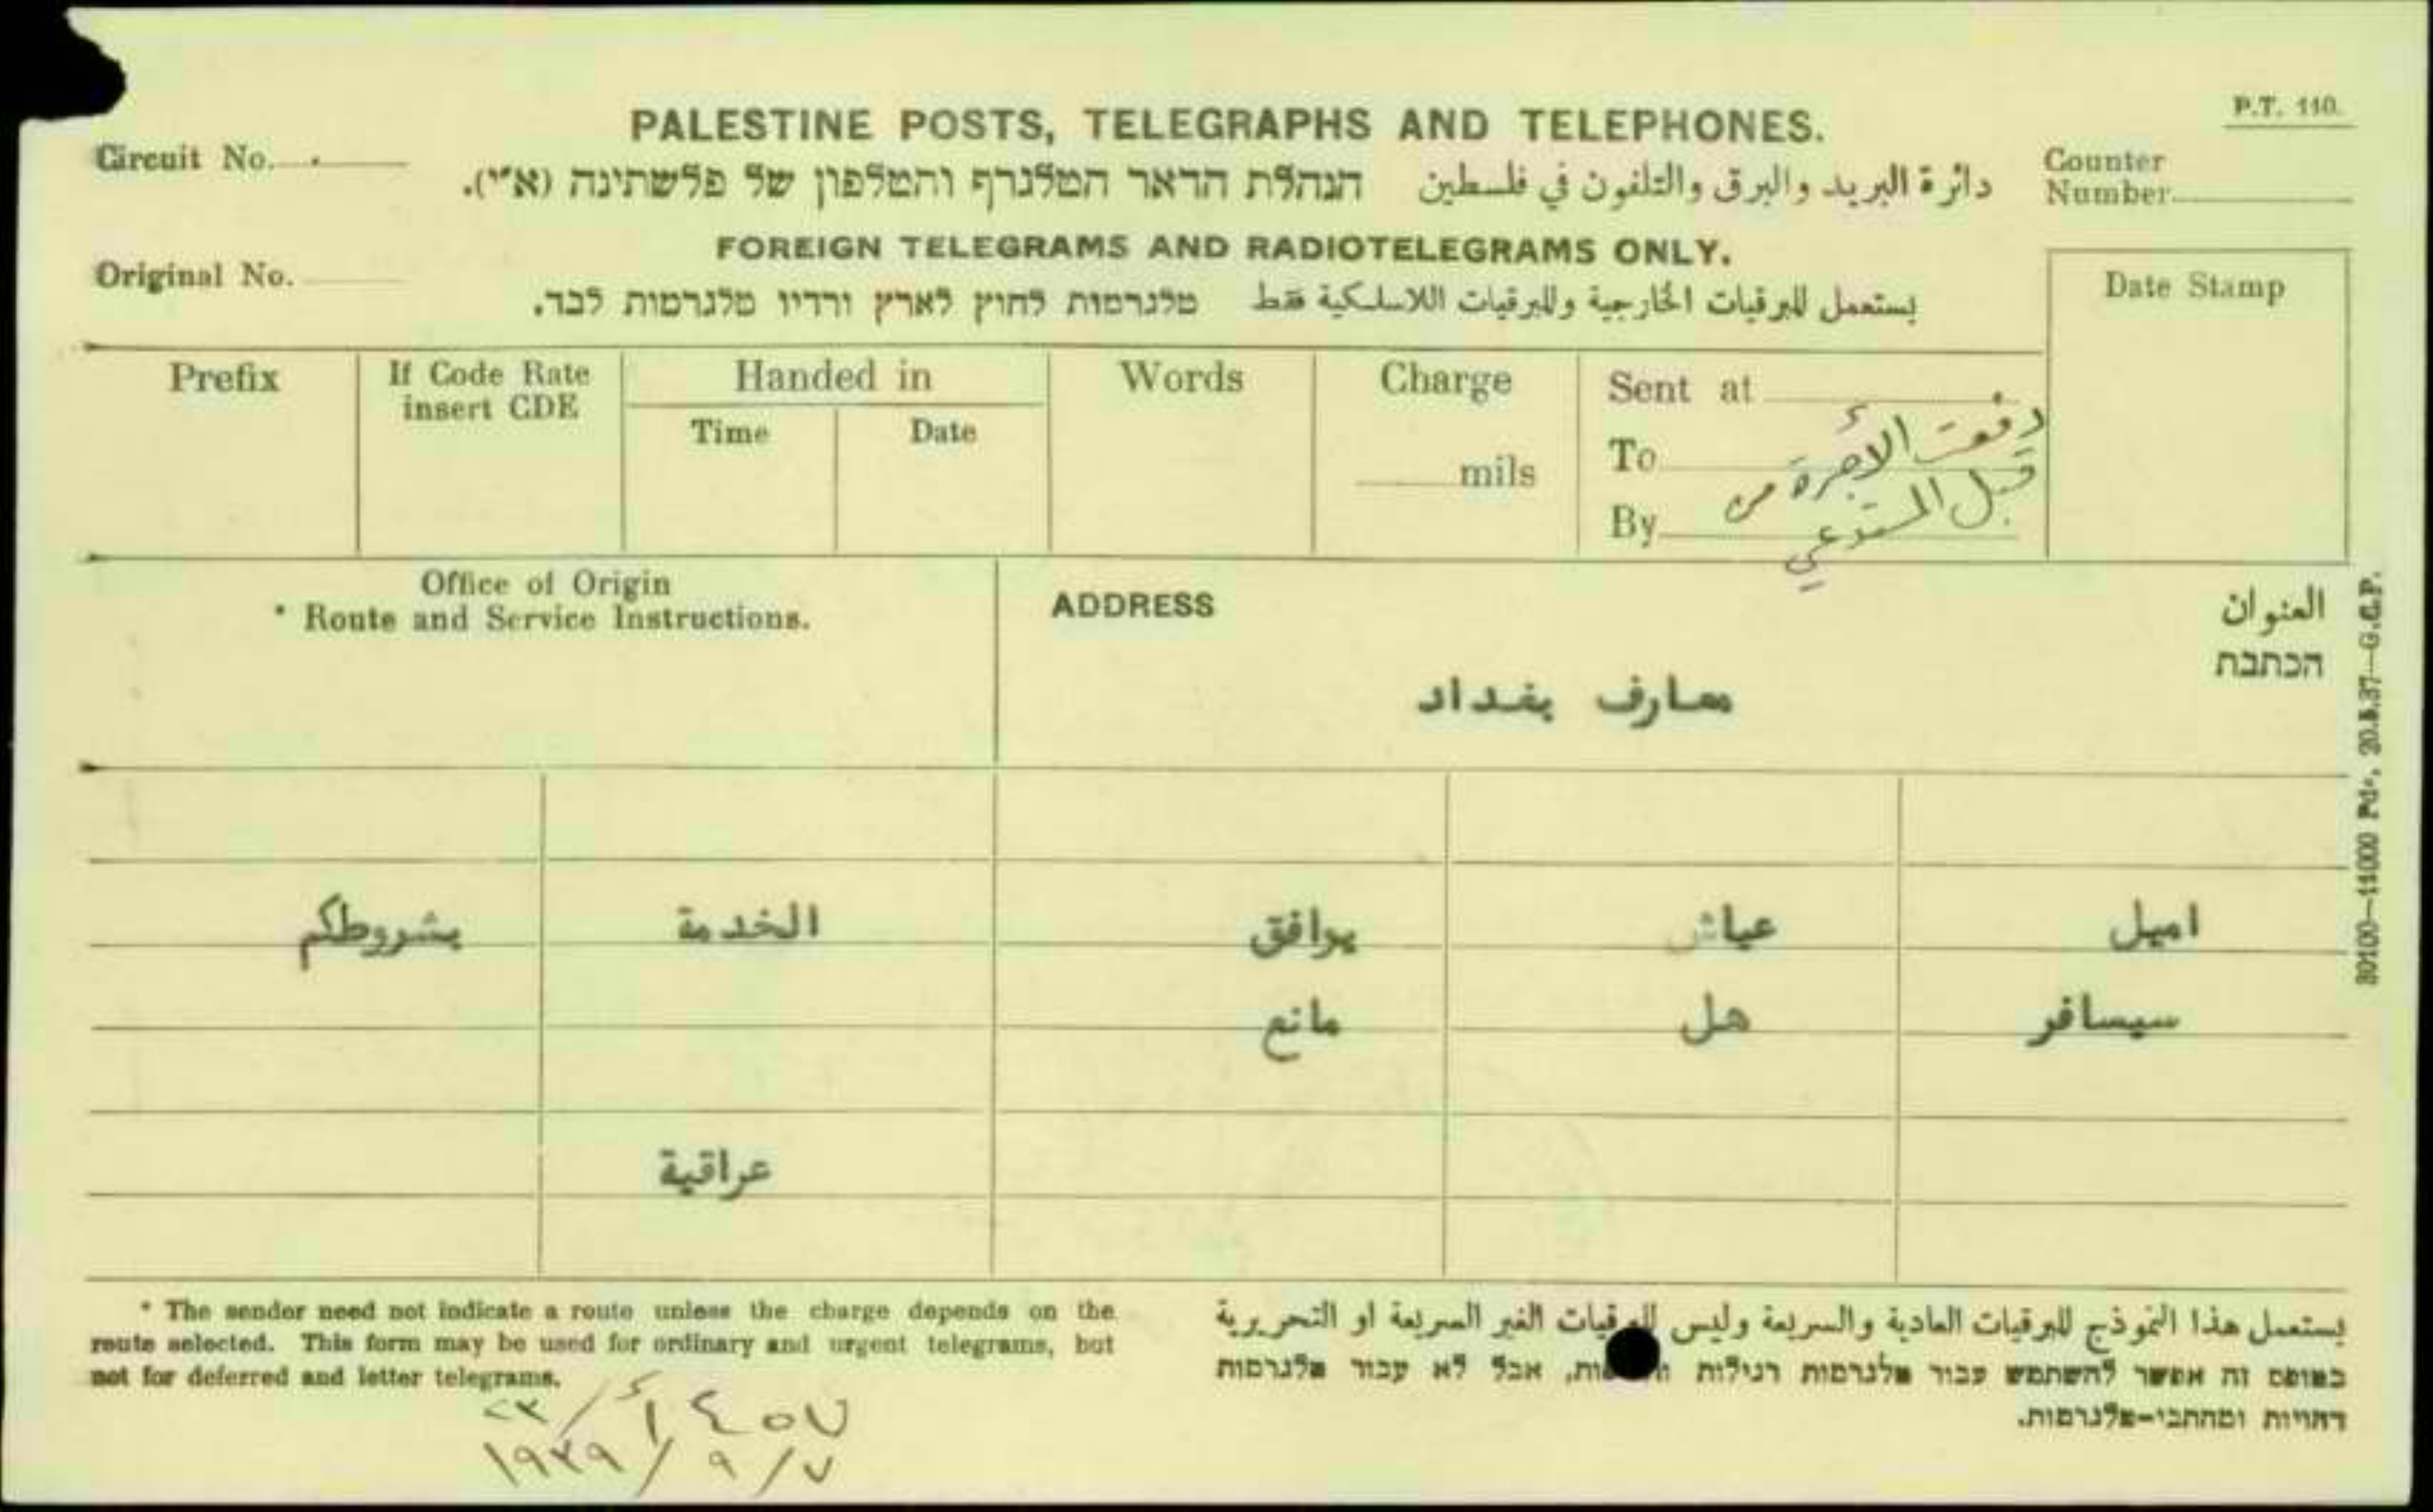 P.T. 110.
PALESTINE POSTS, TELEGRAPHS AND TELEPHONES.
Circuit No.
دائرة البريد والبرق والتلفون في فلسطين הנהלת הדאר הטלגרף והטלפון של פלשתינה (א״י).
Counter Number
FOREIGN TELEGRAMS AND RADIOTELEGRAMS ONLY.
Original No.
يستعمل للبرقيات الخارجية وللبرقيات اللاسلكية فقط טלגרמות לחוץ לארץ ורדיו טלגרמות לבד.
Date Stamp
Prefix
If Code Rate insert CDE
Handed in
Time
Date
Words
Charge
mils
Sent at
To
By
دفعت الأجرة من
قبل المستدعي
Office of Origin
* Route and Service Instructions.
ADDRESS
العنوان
הכתבת
معارف بغداد
اميل عياش يوافق الخدمة بشروطكم
سيسافر هل مانع
عراقية
80100—11000 Pds, 20.5.37—G.C.P.
* The sender need not indicate a route unless the charge depends on the
route selected. This form may be used for ordinary and urgent telegrams, but
not for deferred and letter telegrams.
يستعمل هذا النموذج للبرقيات العادية والسريعة وليس للبرقيات الغير السريعة او التحريرية
בטופס זה אפשר להשתמש עבור טלגרמות רגילות אבל לא עבור טלגרמות
דחויות ומכתבי-טלגרמות.
٧ / ٩ / ١٩٣٩